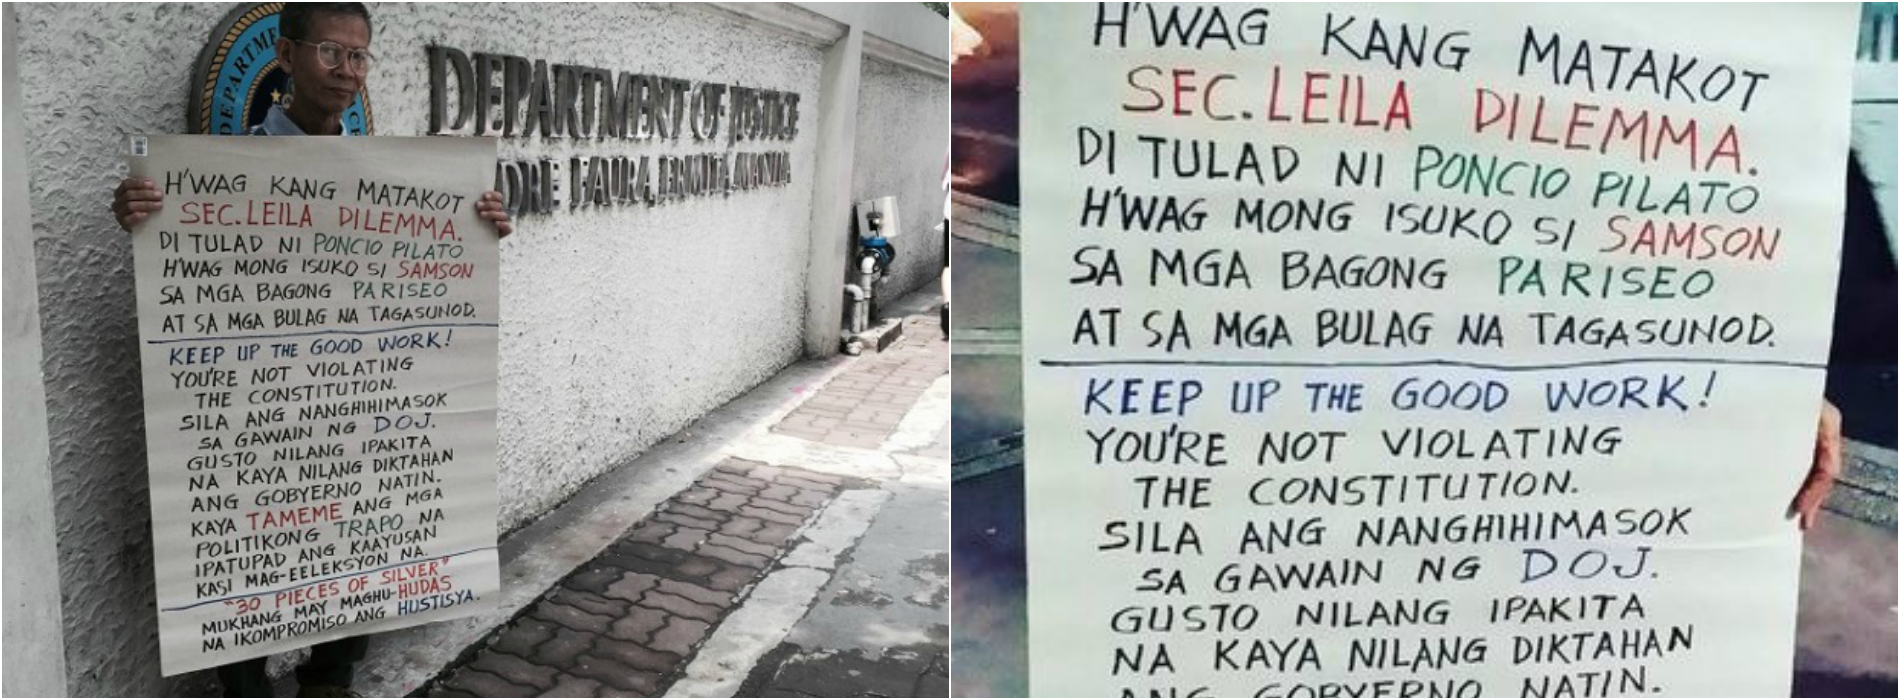 DEPARTMENT
CE
DEPARTMENT OF JUSTICE
DRE FAURA, ERMITA, MANILA
H'WAG KANG MATAKOT
SEC. LEILA DILEMMA.
DI TULAD NI PONCIO PILATO
H'WAG MONG ISUKO SI SAMSON
SA MGA BAGONG PARISEO
AT SA MGA BULAG NA TAGASUNOD.
KEEP UP THE GOOD WORK!
YOU'RE NOT VIOLATING
THE CONSTITUTION.
SILA ANG NANGHIHIMASOK
SA GAWAIN NG DOJ.
GUSTO NILANG IPAKITA
NA KAYA NILANG DIKTAHAN
ANG GOBYERNO NATIN.
KAYA TAMEME ANG MGA
POLITIKONG TRAPO NA
IPATUPAD ANG KAAYUSAN
KASI MAG-EELEKSYON NA.
"30 PIECES OF SILVER"
MUKHANG MAY MAGHU-HUDAS
NA IKOMPROMISO ANG HUSTISYA.
H'WAG KANG MATAKOT
SEC. LEILA DILEMMA.
DI TULAD NI PONCIO PILATO
H'WAG MONG ISUKO SI SAMSON
SA MGA BAGONG PARISEO
AT SA MGA BULAG NA TAGASUNOD.
KEEP UP THE GOOD WORK!
YOU'RE NOT VIOLATING
THE CONSTITUTION.
SILA ANG NANGHIHIMASOK
SA GAWAIN NG DOJ.
GUSTO NILANG IPAKITA
NA KAYA NILANG DIKTAHAN
ANG GOBYERNO NATIN.